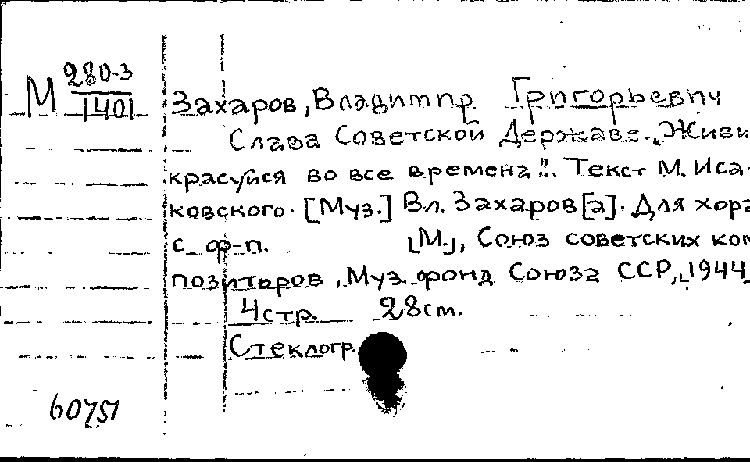 М 280-3
1401
Захаров, Владимир Григорьевич
Слава Советской Державе. „Живи
красуйся во все времена!". Текст М. Иса-
ковского. [Муз.] Вл. Захаров[а]. Для хора
с ф-п. [М.], Союз советских ком
позиторов, Муз. фонд Союза ССР, [1944
4стр. 28см.
Стеклогр.
60751